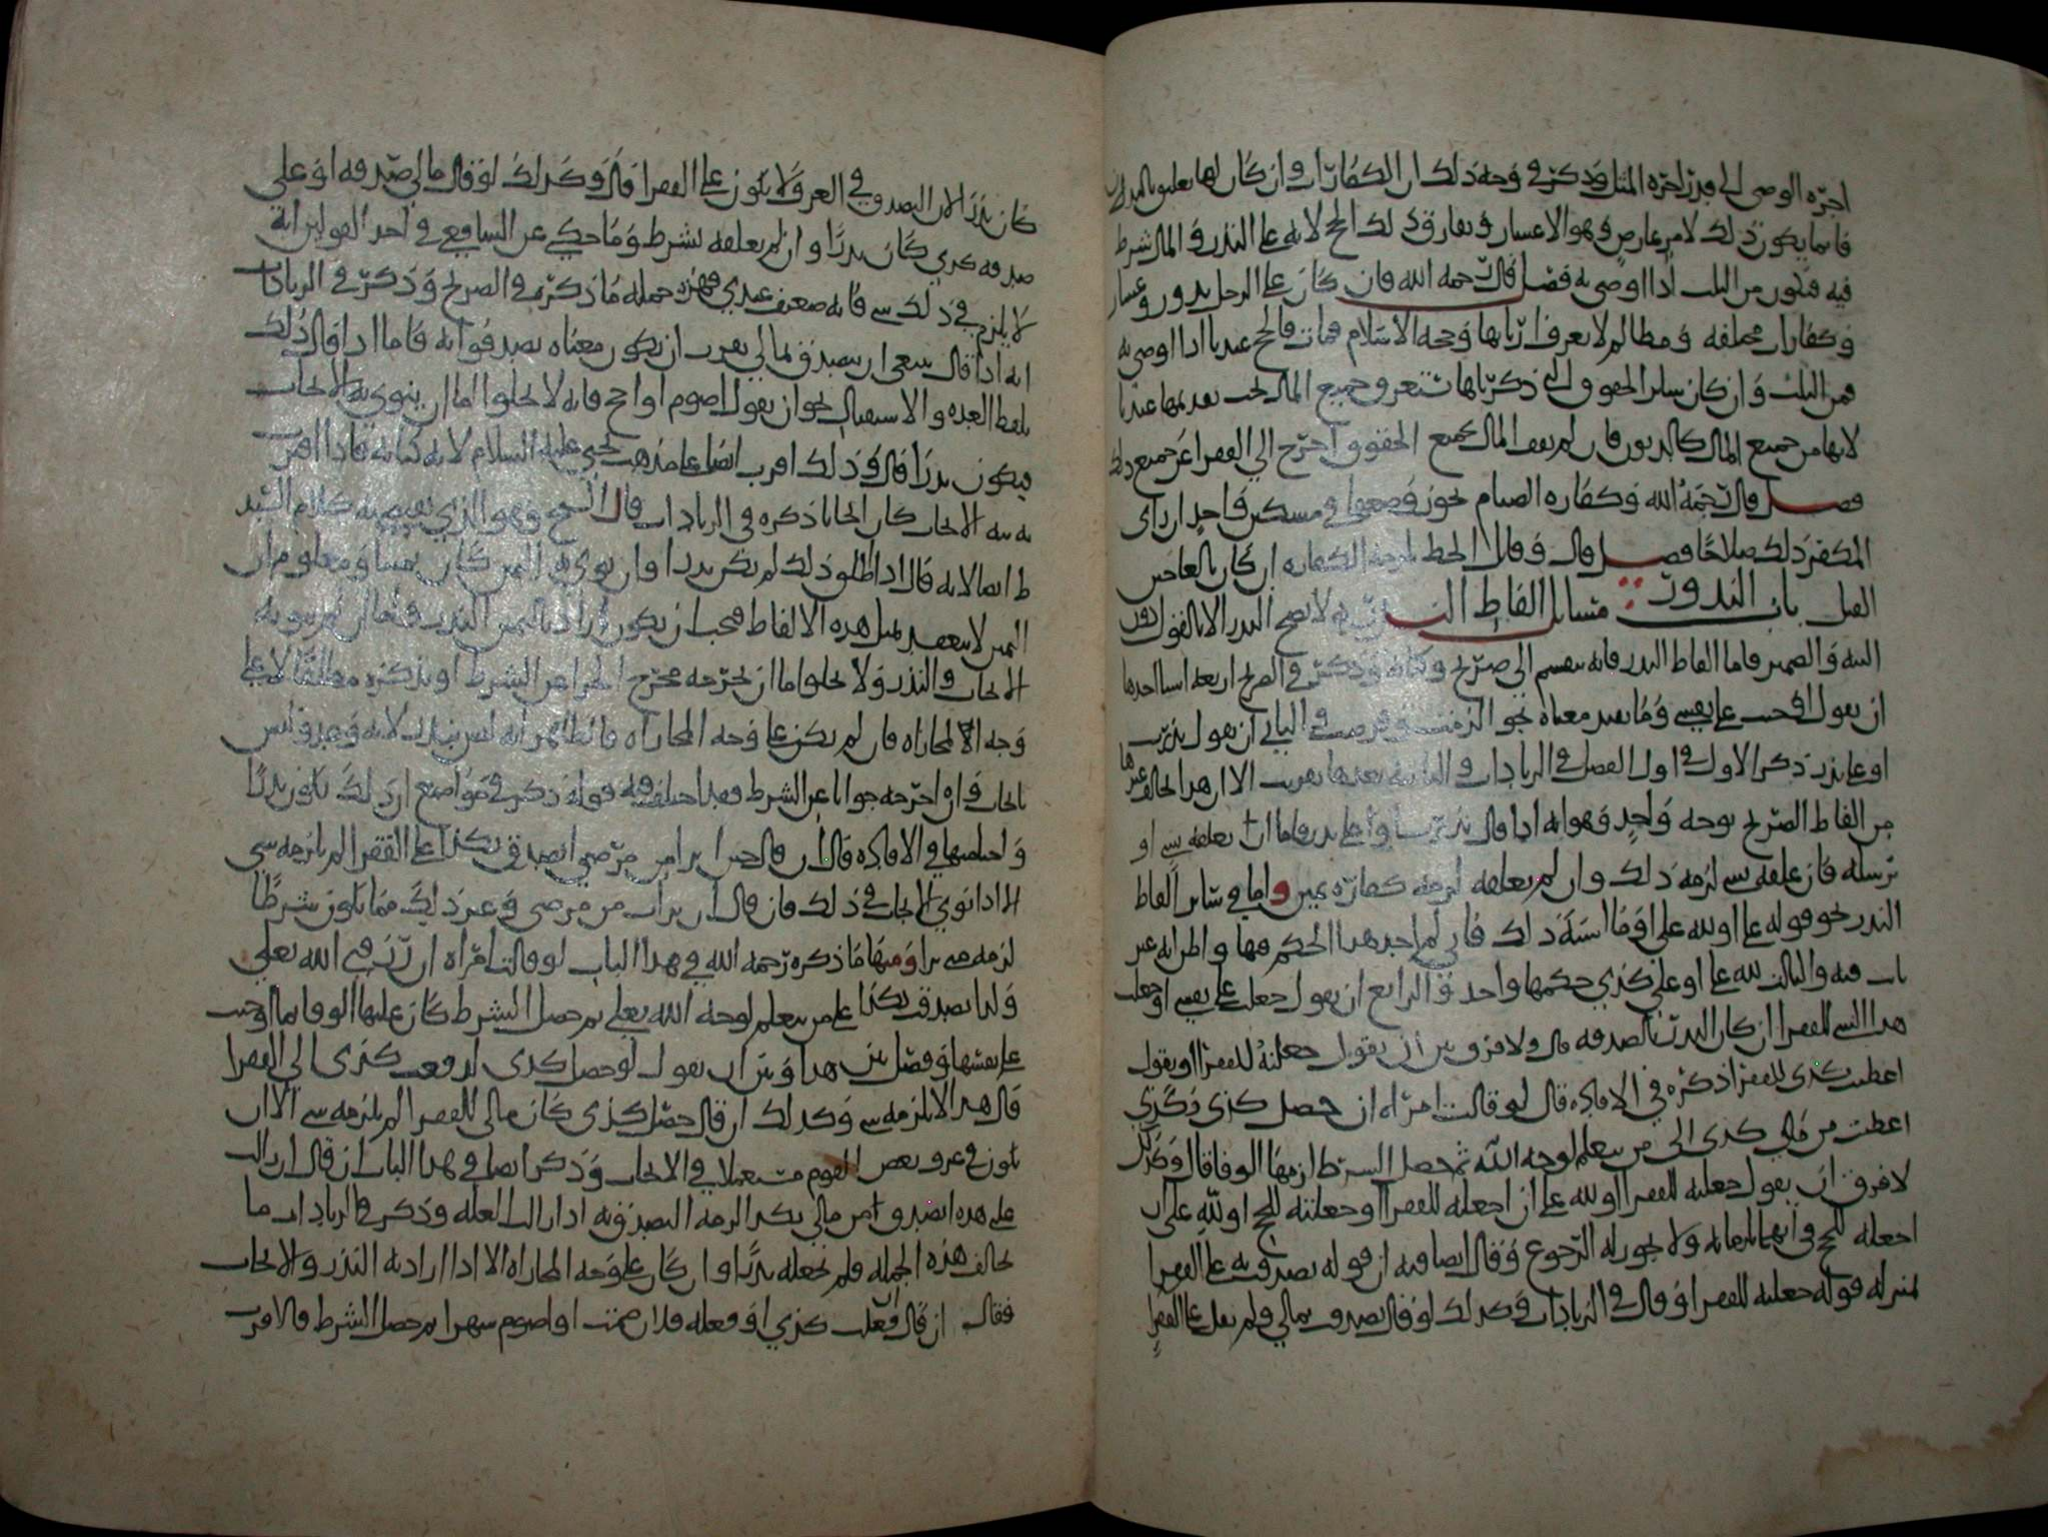 اجره الوصي الى قدر اجره المثل وذكر في وجه ذلك ان الكفارات وان كان لها تعلق بالمال
فانما يكون ذلك لامر عارض وهو الاعسار وتفارق ذلك الحج لانه على النذر والمال شرط
فيه فتكون من الثلث اذا اوصى به فصل قال رحمه الله فان كان على الرجل نذور وعشار
وكفارات مختلفه ومظالم لا يعرف اربابها وحجه الاسلام فمات فالحج عندنا اذا اوصى به
فمن الثلث وان كان سائر الحقوق التي ذكرناها تستغرق جميع المال يجب تقديمها عندنا
لانها من جميع المال كالديون فان لم يف المال بجميع الحقوق اخرج الى الفقرا عن جميع ذلك
فصل قال رحمه الله وكفاره الصيام يجوز وضعها في مسكين واحد ان راى
المكفر ذلك صلاحا فصل قال وقتل الخطا يوجب الكفاره ان كان بالغا حين
القتل باب النذور مسائل الفاظ النذر لا يصح النذر الا بالقول دون
النيه والضمير فاما الفاظ النذر فانه ينقسم الى صريح وكنايه وذكر في الصريح اربعه اشيا احدها
ان يقول اوجبت على نفسي وما يفيد معناه نحو الزمت وفرضت والثاني ان يقول نذرت
او علي نذر ذكر الاول في اول الفصل في الزيادات والثانيه بعدها بقريب الا ان هذا يخالف غيرها
من الفاظ الصريح بوجه واحد وهو انه اذا قال نذرت او علي نذر فاما ان يعلقه بشي او
يرسله فان علقه بشي لزمه ذلك وان لم يعلقه لزمه كفاره يمين واما في سائر الفاظ
النذر نحو قوله علي او لله علي او ما اشبه ذلك فاني لم اجد هذا الحكم فيها واظن انه غير
ثابت فيه والثالث لله علي او علي كذى حكمها واحد والرابع ان يقول جعلت على نفسي او جعلت
هذا الشي للفقرا ان كان النذر بالصدقه قال ولا فرق بين ان يقول جعلته للفقرا او يقول
اعطيت كذى للفقرا ذكره في الافاده قال لو قالت امراه ان حصل كذى وكذى
اعطيت من مالي كذى الى من يتعلم لوجه الله ثم حصل الشرط لزمها الوفا قال وكذلك
لا فرق ان يقول جعلته للفقرا او لله علي ان اجعله للفقرا او جعلته للحج او لله علي ان
اجعله للحج في انهما يلزمانه ولا يجوز له الرجوع وقال ايضا فيه ان قوله تصدقت به على الفقرا
بمنزله قوله جعلته للفقرا وقال في الزيادات وكذلك لو قال تصدقت بمالي ولم يقل على الفقرا
كان نذرا لان التصدق في العرف لا يكون على الفقرا قال وكذلك لو قال مالي صدقه او علي
صدقه كذى كان نذرا وان لم يعلقه بشرط وما حكي عن الشافعي في احد القولين انه
لا يلزم في ذلك شي فانه ضعيف عندي فهذه جمله ما ذكره في الصريح وذكر في الزيادات
انه اذا قال ينبغي ان يتصدق بمالي يقرب ان يكون معناه تصدقوا به فاما اذا قال ذلك
بلفظ العده والاستقبال نحو ان يقول اصوم او احج فانه لا يخلوا اما ان ينوي به الايجاب
فيكون نذرا قال وذلك اقرب ايضا على مذهب يحيى عليه السلام لانه كنايه فاذا اقترن
به نيه الايجاب كان ايجابا ذكره في الزيادات قال الشيخ وهو الذي يقتضيه كلام السيد
ط ايضا لانه قال اذا اطلق ذلك لم يكن نذرا وان نوى به اليمين كان يمينا ومعلوم ان
اليمين لا ينعقد بمثل هذه الالفاظ فيجب ان يكون اراد باليمين النذر واما ان لم ينو به
الايجاب والنذر ولا يخلو اما ان يخرجه مخرج الجزا عن الشرط او يذكره مطلقا لا على
وجه المجازاه فان لم يكن على وجه المجازاه فالظاهر انه ليس بنذر لانه وعد وليس
بايجاب وان اخرجه جوابا عن الشرط فقد اختلف فيه قوله ذكر في مواضع ان ذلك يكون نذرا
واختلفها في الافاده قال ان قال ان برا من مرضي اتصدق بكذا على الفقرا لم يلزمه شي
الا اذا نوى الايجاب في ذلك فان قال ان برات من مرضي وغير ذلك مما يكون شرطا
لزمه متى برا ومنها ما ذكره رحمه الله في هذا الباب لو قالت امراه ان رزقني الله تعلى
ولدا تصدقت بكذا على من يتعلم لوجه الله تعلى ثم حصل الشرط كان عليها الوفا بما اوجبت
على نفسها وفصل بين هذا وبين ان يقول لو حصل كذى لدفعت كذى الى الفقرا
قال هذا لا يلزمه شي وكذلك ان قال حصل كذى كان مالي للفقرا لم يلزمه شي الا ان
يكون في عرف بعض القوم مستعملا في الايجاب وذكر ايضا في هذا الباب ان قال ان زالت
علي هذه اتصدق من مالي بكذا لزمه التصدق به اذا زالت العله وذكر في الزيادات ما
يخالف هذه الجمله فلم يجعله نذرا وان كان على وجه المجازاه الا اذا اراد به النذر والايجاب
فقال ان قال ان فعلت كذى او فعله فلان صمت او اصوم شهرا ثم حصل الشرط فالاقرب